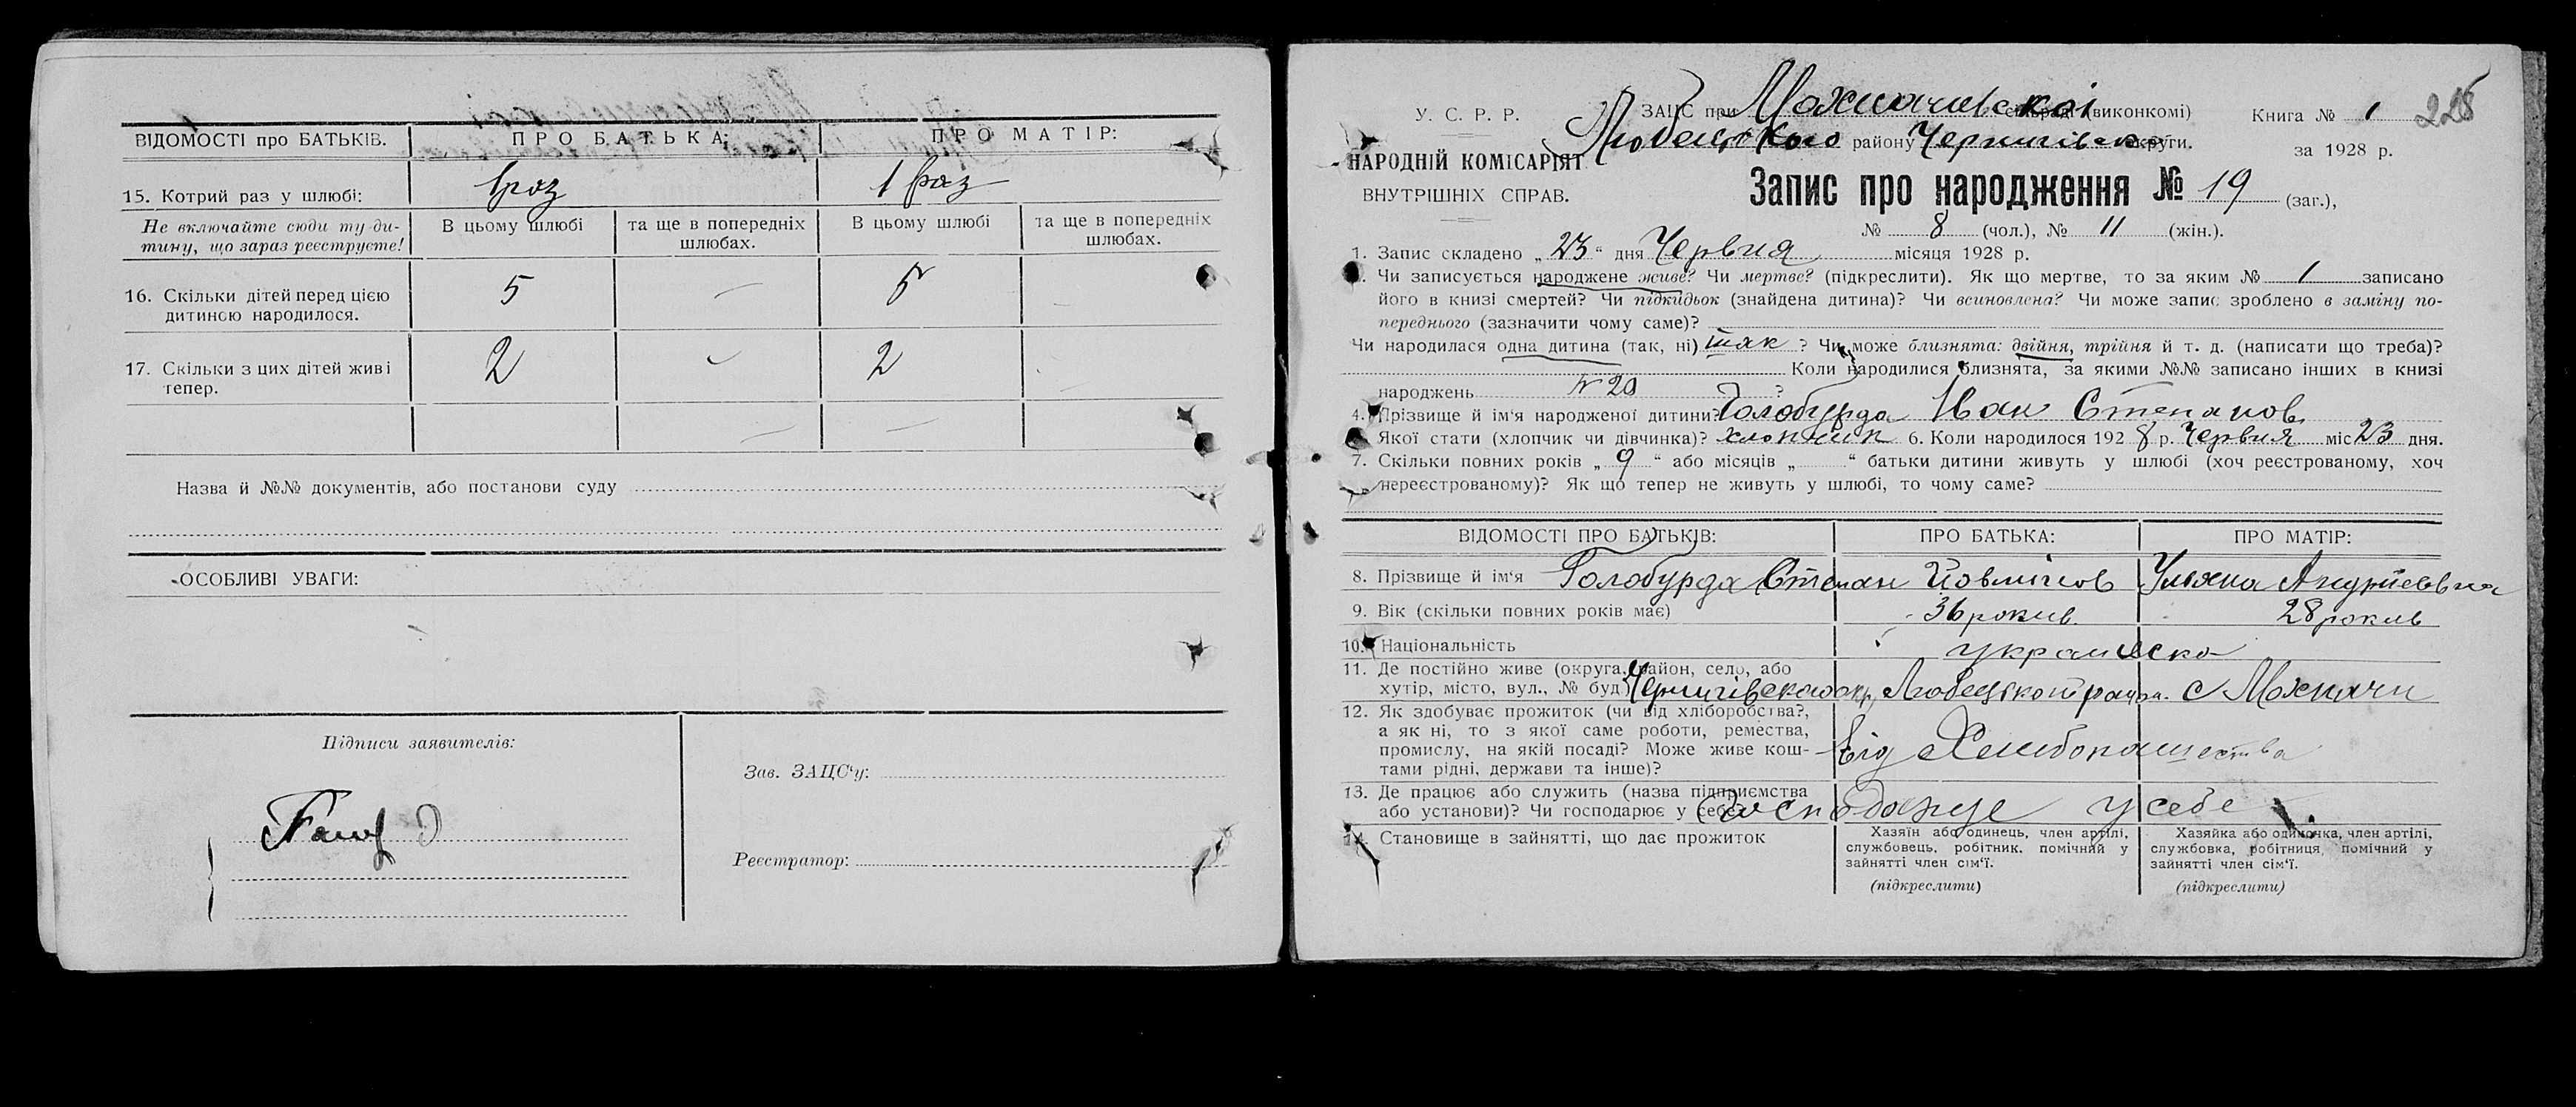 ВІДОМОСТІ про БАТЬКІВ. ПРО БАТЬКА: ПРО МАТІР:
15. Котрий раз у шлюбі: 1 раз 1 раз
Не включайте сюди ту ди-
тину, що зараз реєструєте!
В цьому шлюбі
та ще в попередніх
шлюбах.
В цьому шлюбі
та ще в попередніх
шлюбах.
16. Скільки дітей перед цією
дитиною народилося.
5 — 5
17. Скільки з цих дітей живі
тепер.
2 2
Назва й №№ документів, або постанови суду
ОСОБЛИВІ УВАГИ:
Підписи заявителів:
Зав. ЗАЦС'у:
Реєстратор:
У. С. Р. Р.
НАРОДНІЙ КОМІСАРІЯТ
ВНУТРІШНІХ СПРАВ.
ЗАЦС при Махначівській сільраді (виконкомі)
Любецького району Чернигівсько округи.
Книга № 1 228
за 1928 р.
Запис про народження № 19 (заг.),
№ 8 (чол.), № 11 (жін.).
1. Запис складено „23“ дня Червня місяця 1928 р.
Чи записується народжене живе? Чи мертве? (підкреслити). Як що мертве, то за яким № 1 записано
його в книзі смертей? Чи підкидьок (знайдена дитина)? Чи всиновлена? Чи може запис зроблено в заміну по-
переднього (зазначити чому саме)?
Чи народилася одна дитина (так, ні) так ? Чи може близнята: двійня, трійня й т. д. (написати що треба)?
Коли народилися близнята, за якими №№ записано інших в книзі
народжень № 20 ?
4. Прізвище й ім'я народженої дитини? Голобурда Іван Степанов
Якої стати (хлопчик чи дівчинка)? хлопчик 6. Коли народилося 1928 р. Червня міс 23 дня.
7. Скільки повних років „9“ або місяців „ “ батьки дитини живуть у шлюбі (хоч реєстрованому, хоч
нереєстрованому)? Як що тепер не живуть у шлюбі, то чому саме?
ВІДОМОСТІ ПРО БАТЬКІВ: ПРО БАТЬКА: ПРО МАТІР:
8. Прізвище й ім'я Голобурда Степан Ульяна Андріевна
9. Вік (скільки повних років має) 36 роков 28 роков
10. Національність украинска
11. Де постійно живе (округа, район, село, або
хутір, місто, вул., № буд.) Чернигівской окр, Любецькой район. с Махначи
12. Як здобуває прожиток (чи від хліборобства?,
а як ні, то з якої саме роботи, ремества,
промислу, на якій посаді? Може живе кош-
тами рідні, держави та інше)?
від Хлибопашества
13. Де працює або служить (назва підприємства
або установи)? Чи господарює у себе? Господарує у себе
14. Становище в зайнятті, що дає прожиток
Хазяїн або одинець, член артілі,
службовець, робітник, помічний у
зайнятті член сім'ї.
(підкреслити)
Хазяйка або одиночка, член артілі,
службовка, робітниця, помічний у
зайнятті член сім'ї.
(підкреслити)